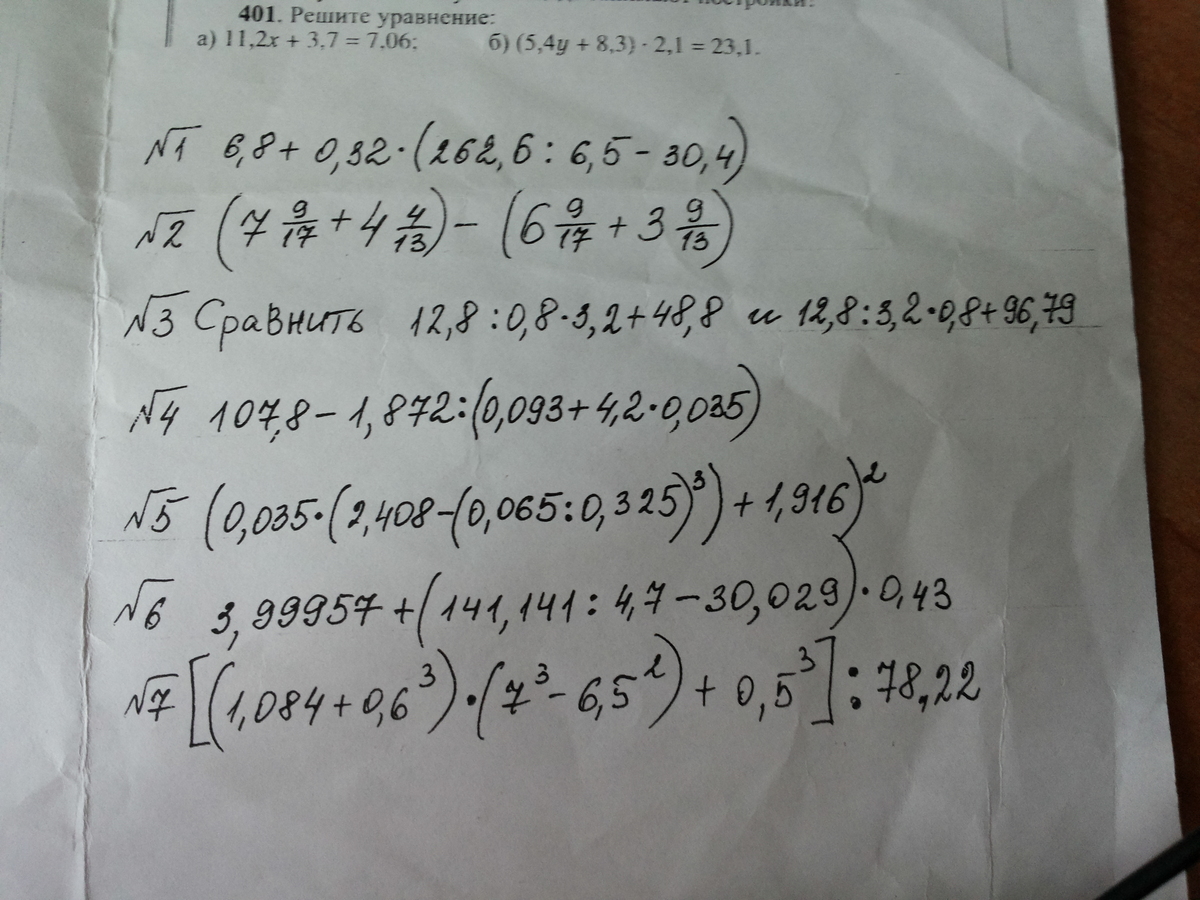 постройки:
401. Решите уравнение:
а) 11,2x + 3,7 = 7,06; б) (5,4y + 8,3) · 2,1 = 23,1.
№1 6,8 + 0,32·(262,6 : 6,5 - 30,4)
№2 (7 9/17 + 4 4/13) - (6 9/17 + 3 9/13)
№3 Сравнить 12,8 : 0,8·3,2 + 48,8 и 12,8 : 3,2·0,8 + 96,79
№4 107,8 - 1,872 : (0,093 + 4,2·0,035)
№5 (0,035·(2,408 - (0,065 : 0,325)³) + 1,916)²
№6 3,99957 + (141,141 : 4,7 - 30,029)·0,43
№7 [(1,084 + 0,6³)·(7³ - 6,5²) + 0,5³] : 78,22